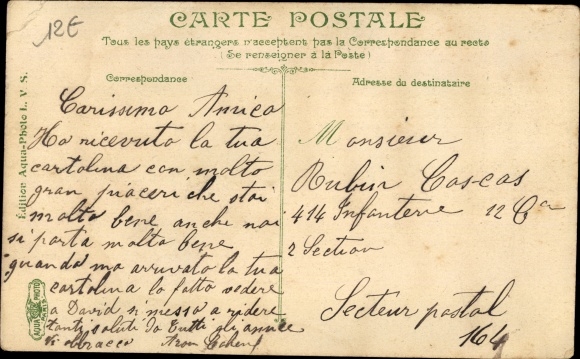 12€
CARTE POSTALE
Tous les pays étrangers n'acceptent pas la Correspondance au recto
(Se renseigner à la Poste)
Correspondance
Adresse du destinataire
Edition Aqua-Photo L. V. S.
Carissimo Amico
Ho ricevuto la tua
cartolina con molto
gran piaceri che stai
molto bene anche noi
si porta molto bene
quando ma arrivato la tua
cartolina lo fatto vedere
a David si messo a ridere
tanti saluti da tutti gli amice
ti abracco
Monsieur
Rubin Cas-cas
414 Infanterie 12 Cie
2 Section
Secteur postal
164
AQUA PHOTO
PARIS